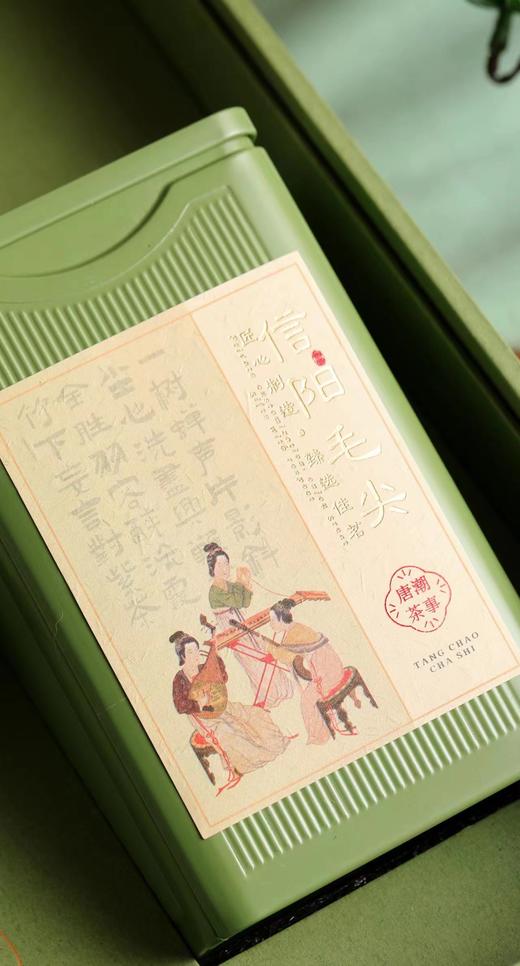 信阳毛尖
匠心制造，臻选佳茗
一树蝉声片影斜
尘心洗盡興
全胜羽客醉流霞
竹下忘言對紫茶
唐潮
茶事
TANG CHAO
CHA SHI